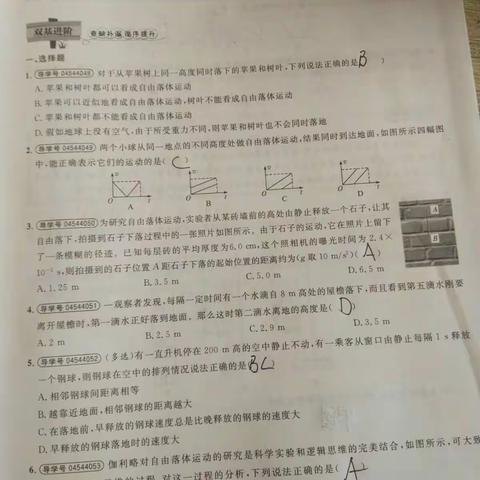 双基进阶 查缺补漏 循序提升
一、选择题
1. 导学号 04544048 对于从苹果树上同一高度同时落下的苹果和树叶,下列说法正确的是(B)
A. 苹果和树叶都可以看成自由落体运动
B. 苹果可以近似地看成自由落体运动,树叶不能看成自由落体运动
C. 苹果和树叶都不能看成自由落体运动
D. 假如地球上没有空气,由于所受重力不同,则苹果和树叶也不会同时落地
2. 导学号 04544049 两个小球从同一地点的不同高度处做自由落体运动,结果同时到达地面,如图所示四幅图
中,能正确表示它们的运动的是(C)
v v v v
O t O t O t O t
A B C D
3. 导学号 04544050 为研究自由落体运动,实验者从某砖墙前的高处由静止释放一个石子,让其
自由落下,拍摄到石子下落过程中的一张照片如图所示。由于石子的运动,它在照片上留下
了一条模糊的径迹。已知每层砖的平均厚度为6.0 cm,这个照相机的曝光时间为 2.4×
10⁻² s,则拍摄到的石子位置 A 距石子下落的起始位置的距离约为(g 取 10 m/s²)(A)
A. 1.25 m B. 3.5 m C. 5.0 m D. 6.5 m
A
B
4. 导学号 04544051 一观察者发现,每隔一定时间有一个水滴自 8 m 高处的屋檐落下,而且看到第五滴水刚要
离开屋檐时,第一滴水正好落到地面。那么这时第二滴水离地的高度是(D)
A. 2 m B. 2.5 m C. 2.9 m D. 3.5 m
5. 导学号 04544052 (多选)有一直升机停在 200 m 高的空中静止不动,有一乘客从窗口由静止每隔 1 s 释放
一个钢球,则钢球在空中的排列情况说法正确的是(BC
A. 相邻钢球间距离相等
B. 越靠近地面,相邻钢球的距离越大
C. 在落地前,早释放的钢球速度总是比晚释放的钢球的速度大
D. 早释放的钢球落地时的速度大
6. 导学号 04544053 伽利略对自由落体运动的研究是科学实验和逻辑思维的完美结合,如图所示,可大致
的过程,对这一过程的分析,下列说法正确的是(A